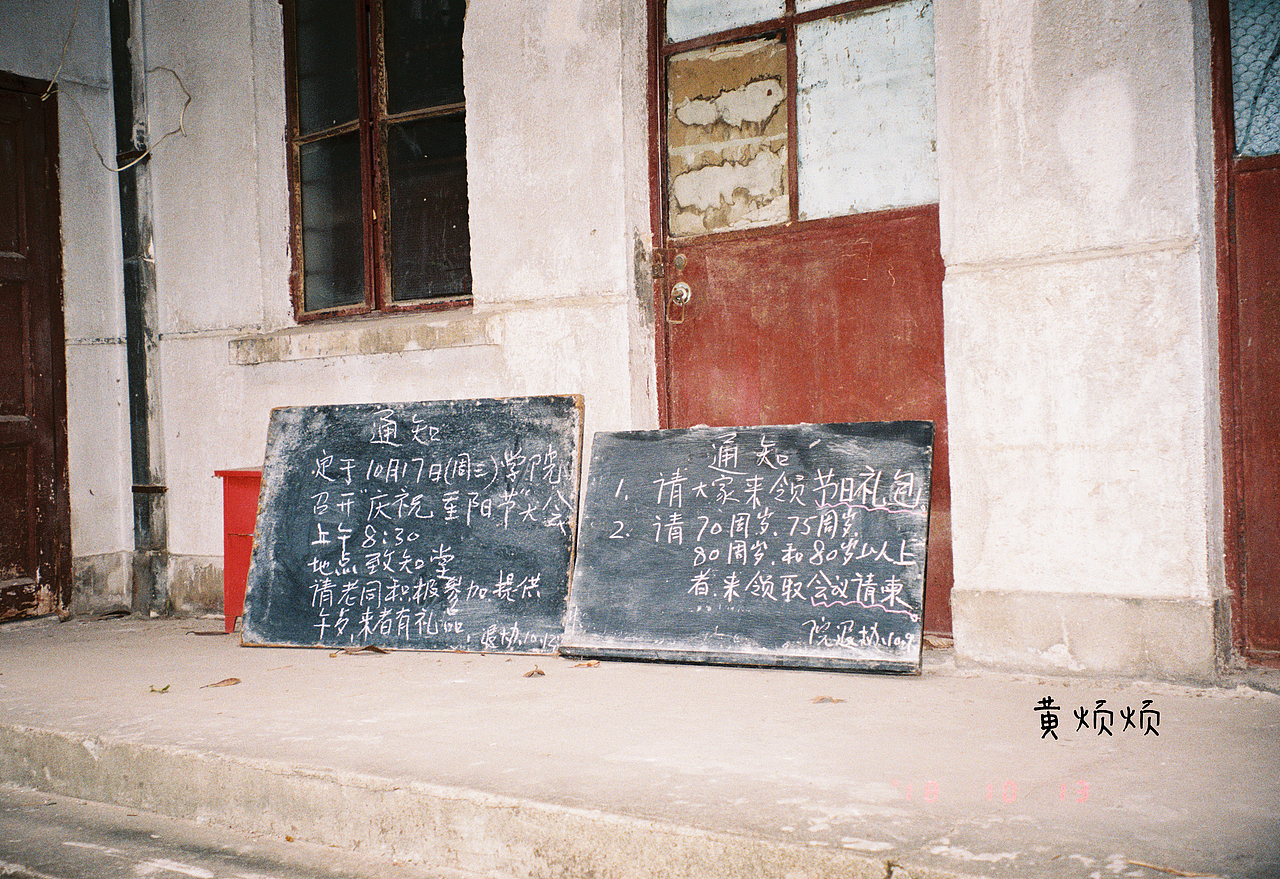 通知
定于10月17日(周三)学院
召开"庆祝重阳节"大会
上午8:30
地点致知堂
请老同积极参加提供
午歺,来者有礼品
退协.10.12
通知
1. 请大家来领节日礼包。
2. 请70周岁.75周岁.
80周岁.和80岁以人上
者.来领取会议请柬
院退协.10.9
黄烦烦